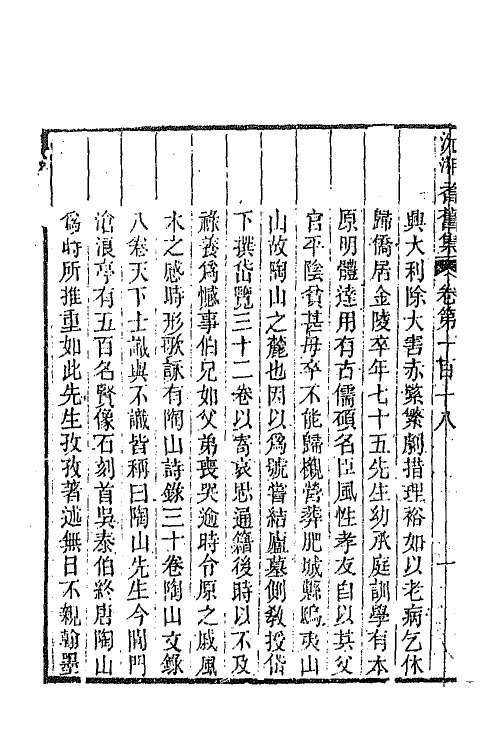 沅湘耆舊集 卷第一百十八 一
興大利除大害赤緊繁劇措理裕如以老病乞休
歸僑居金陵卒年七十五先生幼承庭訓學有本
原明體達用有古儒碩名臣風性孝友自以其父
官平陰貧甚母卒不能歸櫬營葬肥城縣鴟夷山
山故陶山之麓也因以爲號嘗結廬墓側敎授岱
下撰岱覽三十二卷以寄哀思通籍後時以不及
祿養爲憾事伯兄如父弟喪哭逾時令原之戚風
木之感時形歌詠有陶山詩錄三十卷陶山文錄
八卷天下士識與不識皆稱曰陶山先生今閶門
滄浪亭有五百名賢像石刻首吳泰伯終唐陶山
爲時所推重如此先生孜孜著述無日不親翰墨